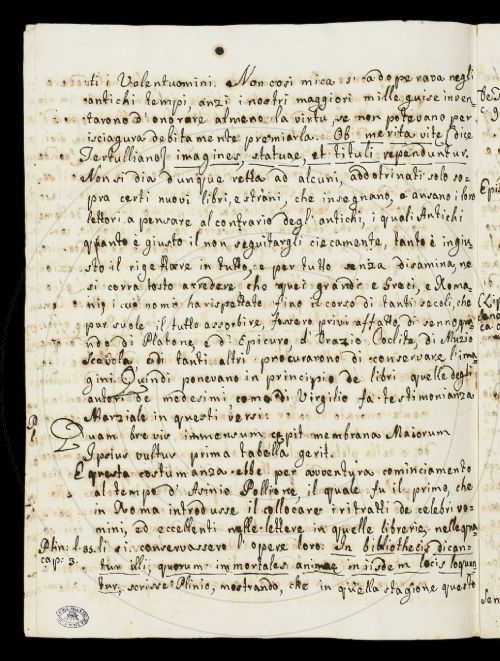 ti i Valentuomini. Non così mica s'adoperava negli
antichi tempi, anzi i nostri maggiori mille guise inven-
tarono d'onorare almeno la virtù, se non potevano per
isciagura debitamente premiarla. Ob merita vite, dice
Tertulliano, imagines, statuae, et tituli rependuntur.
Non si dia dunque retta ad alcuni, addotrinati solo so-
pra certi nuovi libri, e strani, che insegnano, e ausano i loro
lettori a pensare al contrario degli antichi, i quali Antichi
quanto è giusto il non seguitargli ciecamente, tanto è ingiu-
sto il rigettare in tutto, e per tutto senza disamina, ne
si corra tosto a credere che quei grandi e Greci, e Roma-
ni, i cui nomi ha rispettato fino il corso di tanti secoli, che
pur suole il tutto assorbire, fossero privi affatto di senno
do di Platone, e di Epicuro, d'Orazio Coclite, di Muzio
Scevola e di tanti altri procurarono di conservare l'ima-
gini. Quindi ponevano in principio de libri quelle degli
autori de medesimi como di Virgilio fa testimonianza
Marziale in questi versi:
Quam brevis immensum cepit membrana Maronem
Ipsius vultus prima tabella gerit.
E questa costumanza ebbe per avventura cominciamento
al tempo d'Asinio Pollione, il quale fu il primo, che
in Roma introdusse il collocare i ritratti de celebri vo-
mini, ed eccellenti nelle lettere in quelle librerie, nelle qua-
Plin: l. 35. li si conservassero l'opere loro: In bibliothecis dican-
cap: 3. tur illi, quorum immortales animae in iisdem locis loquun
tur, scrisse Plinio, mostrando, che in quella stagione questo